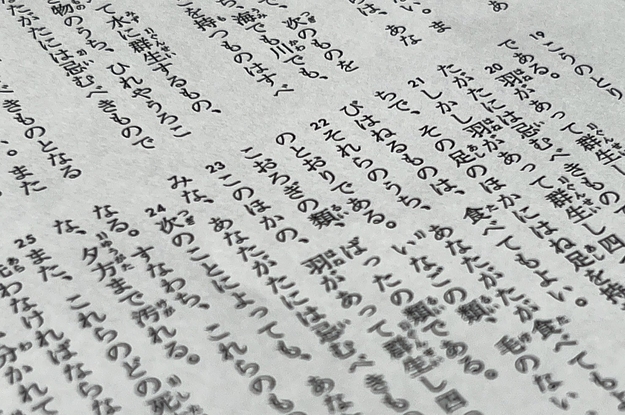 あ
ま
は、あな
次のものを
海でも川でも、
を持つものはすべ
て水に群生するもの、
物のうち、ひれやうろこ
たがたには忌むべきもので
きものとなる
。また
19こうのとり
である。
20羽があって群生し四
たがたには忌むべきもの
21しかし羽があって群生し
ちで、その足のほかにはね足を持
びはねるものは、食べてもよい。
22それらのうち、あなたがたが食べても
のとおりである。いなごの類、毛のない
こおろぎの類、ばったの類である。
23このほかの、羽があって群生し四
みな、あなたがたには忌むべきも
24次のことによっても、あな
なる。すなわち、これらのも
な、夕方まで汚れる。
25また、これらのどの死
わなければならな
分かれて